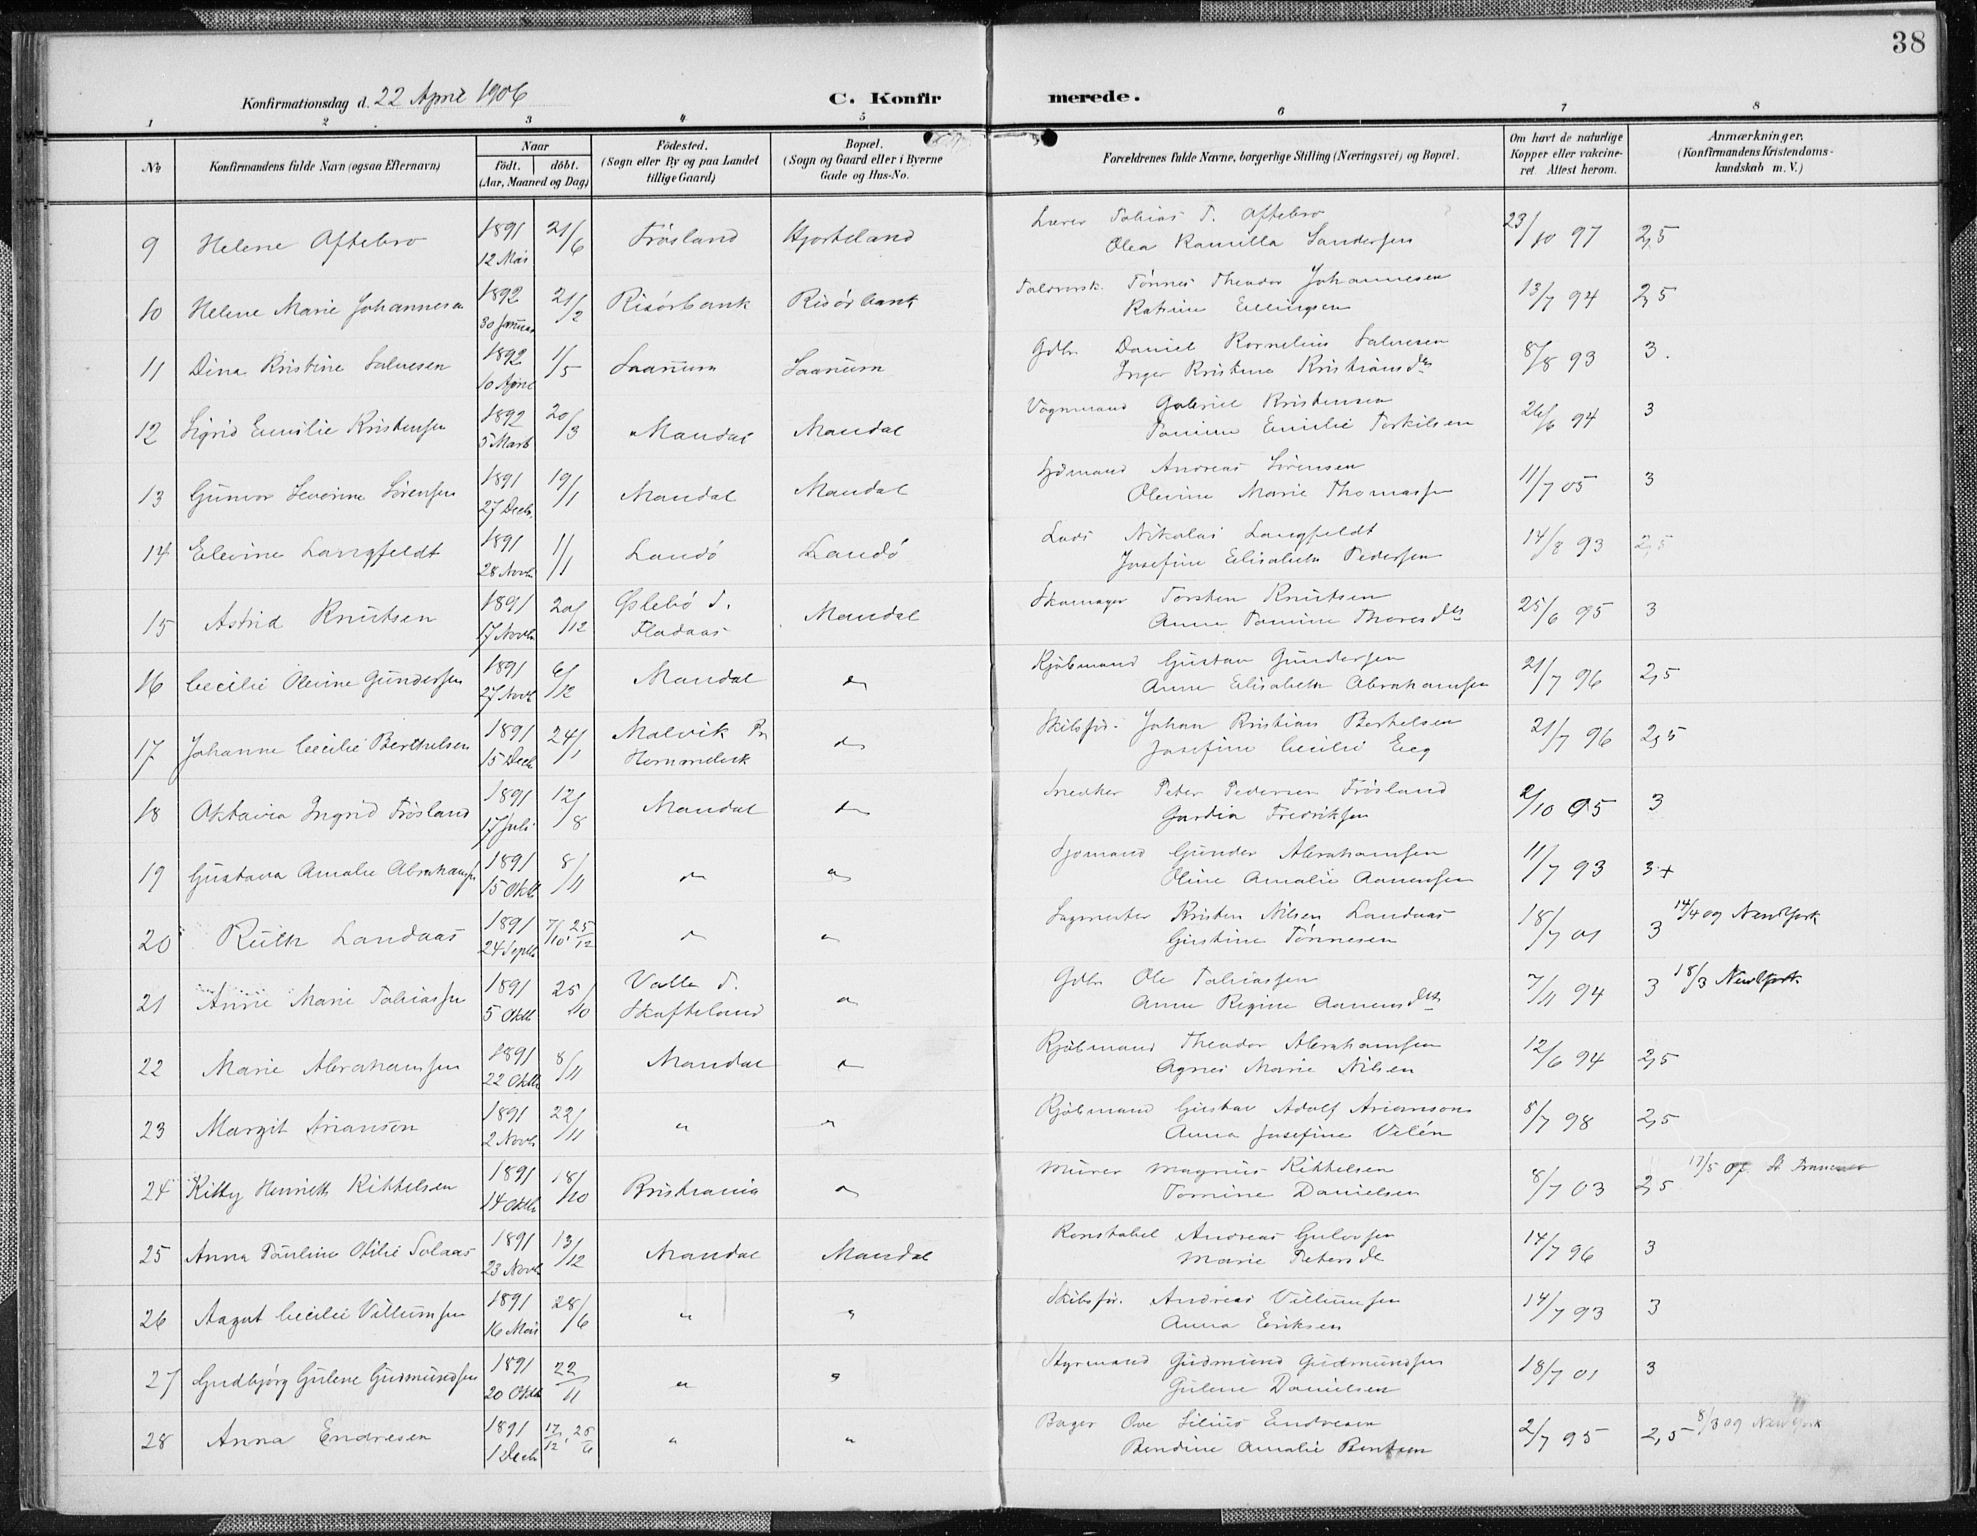 38
Konfirmationsdag d. 22 April 1906 C. Konfirmerede.
1 2 3 4 5 6 7 8
No Konfirmandens fulde Navn (ogsaa Efternavn) Naar født. døbt. (Aar, Maaned og Dag) Fødested. (Sogn eller By og paa Landet tillige Gaard) Bopæl. (Sogn og Gaard eller i Byerne Gade og Hus-No. Forældrenes fulde Navne, borgerlige Stilling (Næringsvei) og Bopæl. Om havt de naturlige Kopper eller vakcineret. Attest herom. Anmærkninger. (Konfirmandens Kristendomskundskab m. V.)
9 Helene Aftebro 1891 12 Mai 21/6 Frøsland Hjorteland Lærer Tobias T. Aftebro Olea Kamilla Sandersen 23/10 97 2,5
10 Helene Marie Johannesen 1892 30 Januar 21/2 Risørbank Risørbank Tønnes Theodor Johannesen Katrine Ellingsen 13/7 94 2,5
11 Dina Kristine Salvesen 1892 10 April 1/5 Saanum Saanum Gdbr Daniel Kornelius Salvesen Inger Kristine Kristiansdtr 8/8 93 3.
12 Sigrid Emilie Kristensen 1892 5 Marts 20/3 Mandal Mandal Vognmand Gabriel Kristensen Tomine Emilie Torkilsen 26/6 94 3
13 Gunvor Severine Sørensen 1891 27 Decb. 19/1 Mandal Mandal Sjømand Andreas Sørensen Olevine Marie Thomassen 11/7 05 3
14 Elevine Langfeldt 1891 28 Novb 1/1 Landø Landø Lods Nikolai Langfeldt Josefine Elisabeth Pedersen 14/8 93 2,5
15 Astrid Knutsen 1891 17 Novb 20/12 Øslebø S. Fladaas Mandal Skomager Torsten Knutsen Anne Tomine Thoresdtr 25/6 95 3
16 Cecilie Olevine Gundersen 1891 27 Novb 6/12 Mandal do Kjøbmand Gustav Gundersen Anne Elisabeth Abrahamsen 21/7 96 2,5
17 Johanne Cecilie Berthelsen 1891 15 Decb 24/1 Malvik Pr Hommelvik do Skibsfør. Johan Kristian Berthelsen Josefine Cecilie Eeg 21/7 96 2,5
18 Oktavia Ingrid Frøsland 1891 17 Juli 12/8 Mandal do Snedker Peter Pedersen Frøsland Gardia Fredriksen 2/10 05 3
19 Gustava Amalie Abrahamsen 1891 15 Oktb 8/11 do do Sjømand Gunder Abrahamsen Oline Amalie Aanensen 11/7 93 3+
20 Ruth Landaas 1891 24 Septb 7/10, 25/12 do " Sagmester Kristen Nilsen Landaas Gustine Tønnesen 18/7 01 3 14/4 09 New York
21 Anne Marie Tobiassen 1891 5 Oktb 25/10 Valle S. Skofteland do Gdbr Ole Tobiassen Anne Regine Aanensdtr 7/11 94 3 18/3 New York
22 Marie Abrahamsen 1891 22 Oktb 8/11 Mandal do Kjøbmand Theodor Abrahamsen Agnes Marie Nilsen 12/6 94 2,5
23 Margit Arianson 1891 2 Novb 22/11 " " Kjøbmand Gustav Adolf Arianson Anna Josefine Vilén 5/7 98 2,5
24 Kitty Henriette Kittelsen 1891 14 Oktb 18/10 Kristiania do Murer Magnus Kittelsen Tomine Danielsen 8/7 03 2,5 17/5 07
25 Anna Pauline Otilie Solaas 1891 23 Novb 13/12 Mandal Mandal Konstabel Andreas Gulovsen Marie Petersd 14/7 96 3
26 Aagot Cecilie Villumsen 1891 16 Mai 28/6 " " Skibsfør. Andreas Villumsen Anna Eriksen 14/7 93 3
27 Gudbjørg Gulene Gudmundsen 1891 20 Oktb 22/11 " " Styrmand Gudmund Gudmundsen Gulene Danielsen 18/7 01 3
28 Anna Endresen 1891 1 Decb 17/12, 25/6 " " Bager Ove Silius Endresen Bendine Amalie Bentsen 2/7 95 2,5 8/3 09 New York